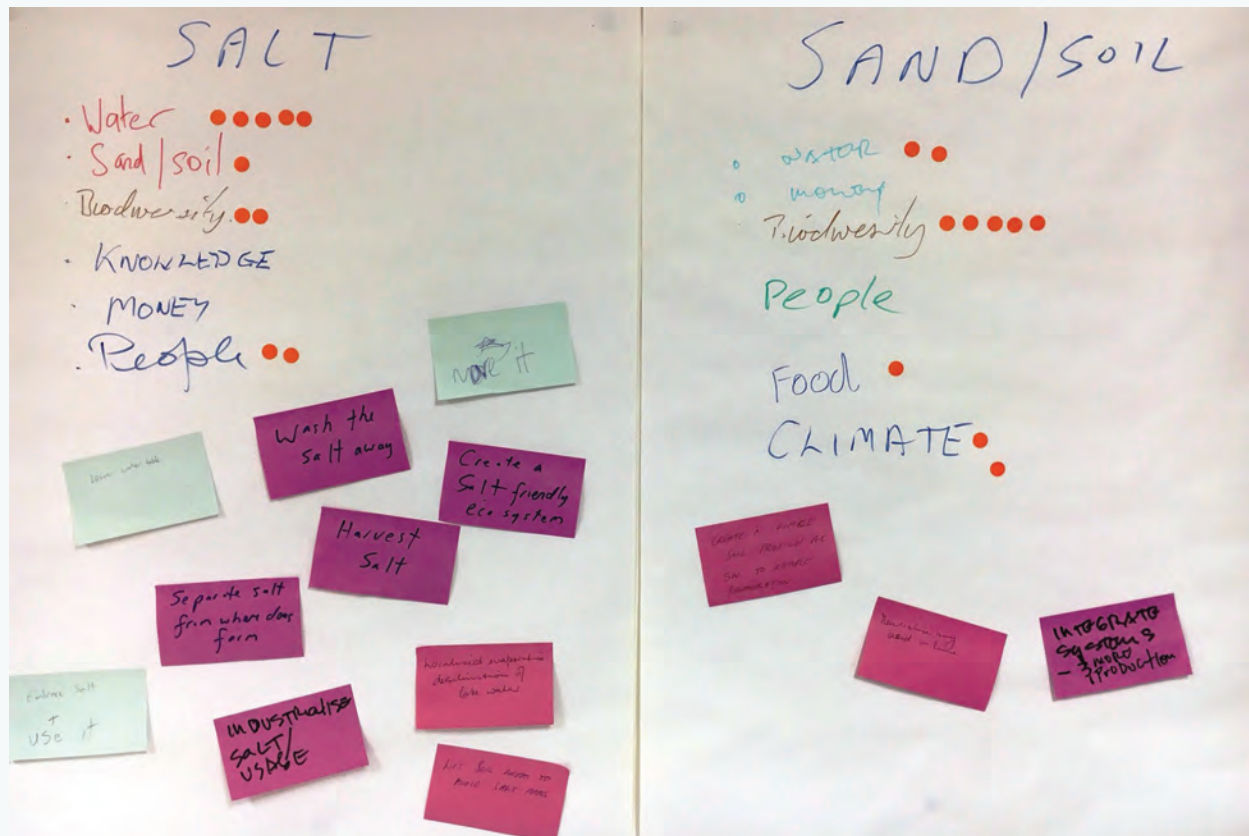 SALT
· Water
· Sand/soil
· Biodiversity
· KNOWLEDGE
· MONEY
· People
move it
Wash the
salt away
Create a
Salt friendly
eco system
Lower water table
Harvest
Salt
Separate salt
from where does
form
Embrace Salt
+
USE it
INDUSTRIALISE
SALT/
USAGE
Localised evaporative
desalination of
lake water
LIFT SOIL
TO
AVOID SALT
SAND/SOIL
water
money
Biodiversity
People
Food
CLIMATE
CREATE A
SOIL
TO
INTEGRATE
SYSTEMS
PRODUCTION